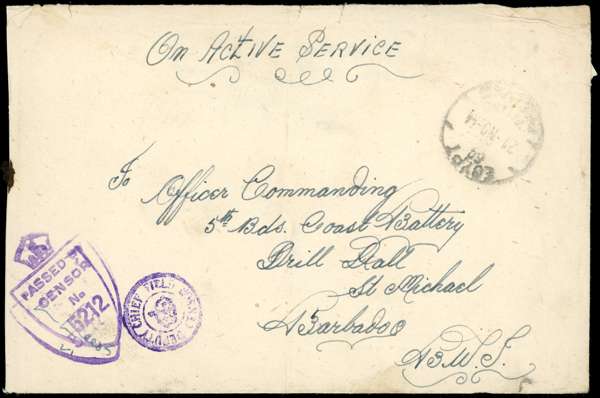 On Active Service
EGYPT
To Officer Commanding
5th Bds. Coast Battery
Drill Hall
St Michael
Barbados
B.W.I.
PASSED BY
CENSOR
No
5212
DEPUTY CHIEF FIELD